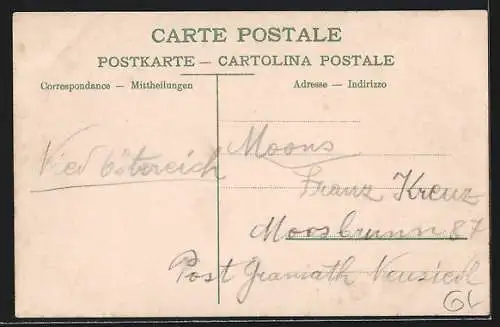 CARTE POSTALE
POSTKARTE — CARTOLINA POSTALE
Correspondance — Mittheilungen
Adresse — Indirizzo
Moons
Nied Östereich
Franz Kreuz
Moosbrunn 87
Post Gramath Neusiedl
GL